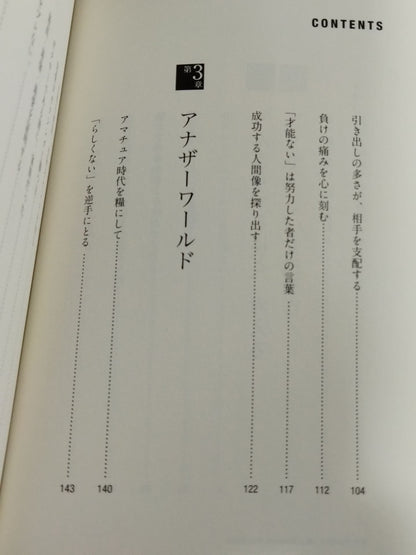 CONTENTS
引き出しの多さが、相手を支配する 104
負けの痛みを心に刻む 112
「才能ない」は努力した者だけの言葉 117
成功する人間像を探り出す 122
第3章 アナザーワールド
アマチュア時代を糧にして 140
「らしくない」を逆手にとる 143